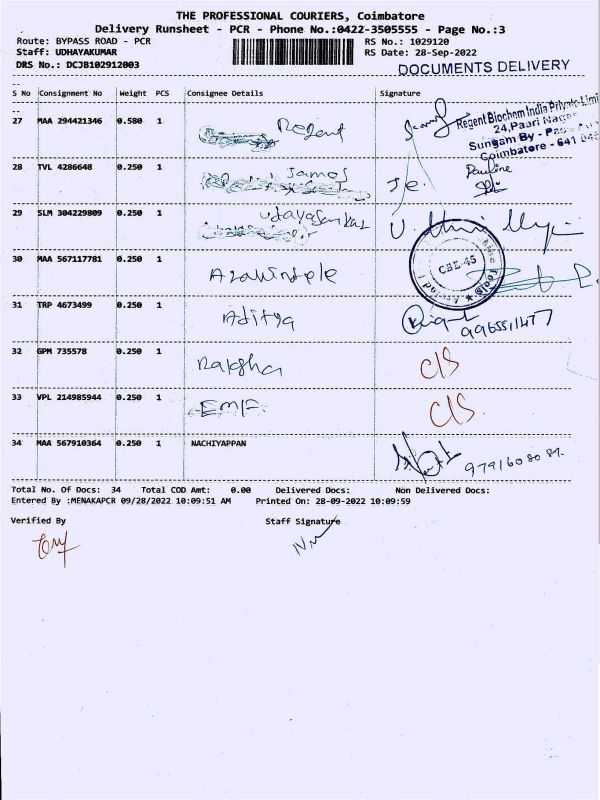 THE PROFESSIONAL COURIERS, Coimbatore
Delivery Runsheet - PCR - Phone No.:0422-3505555 - Page No.:3
Route: BYPASS ROAD - PCR RS No.: 1029120
Staff: UDHAYAKUMAR RS Date: 28-Sep-2022
DRS No.: DCJB102912003 DOCUMENTS DELIVERY
S No Consignment No Weight PCS Consignee Details Signature
27 MAA 294421346 0.580 1 Regent
Regent Biochem India Private Limi
24, Paari Nagar
Sungam By - Pass
Coimbatore - 641 045
28 TVL 4286648 0.250 1 James
Pauline
29 SLM 304229809 0.250 1 Udayasankar
30 MAA 567117781 0.250 1
CBE-45
31 TRP 4673499 0.250 1 Aditya
9965511477
32 GPM 735578 0.250 1 Raksha C/S
33 VPL 214985944 0.250 1 EMF C/S
34 MAA 567910364 0.250 1 NACHIYAPPAN
Total No. Of Docs: 34 Total COD Amt: 0.00 Delivered Docs: Non Delivered Docs:
Entered By :MENAKAPCR 09/28/2022 10:09:51 AM Printed On: 28-09-2022 10:09:59
Verified By Staff Signature